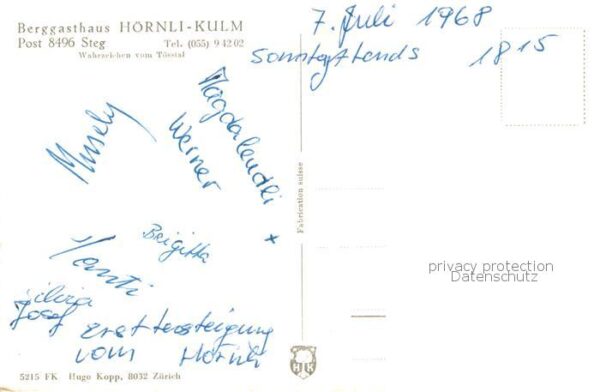 Berggasthaus HÖRNLI-KULM
Post 8496 Steg Tel. (055) 9 42 02
Wahrzeichen vom Tösstal
7. Juli 1968
Sonntagabends 1815
Magdalendli
Werner
Brigitta
Josef
Erstbesteigung
vom Hörnli
Fabrication suisse
privacy protection
Datenschutz
HK
5215 FK Hugo Kopp, 8032 Zürich